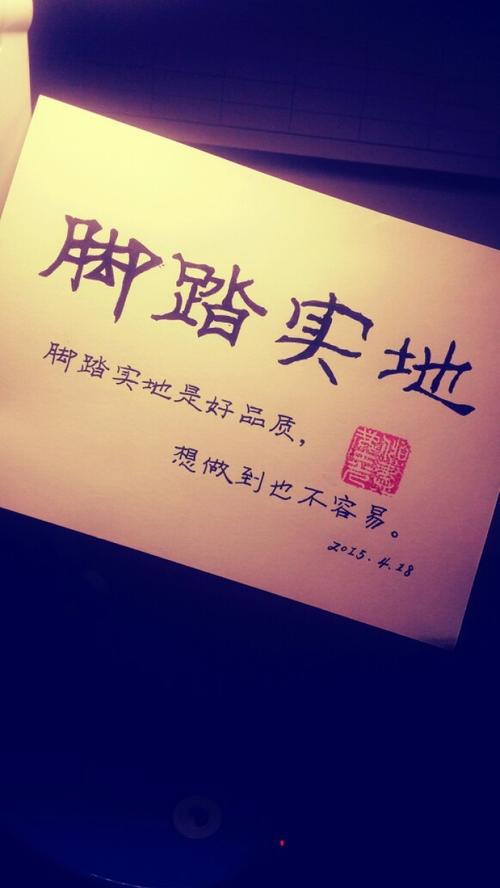 脚踏实地
脚踏实地是好品质，
想做到也不容易。
2015.4.18